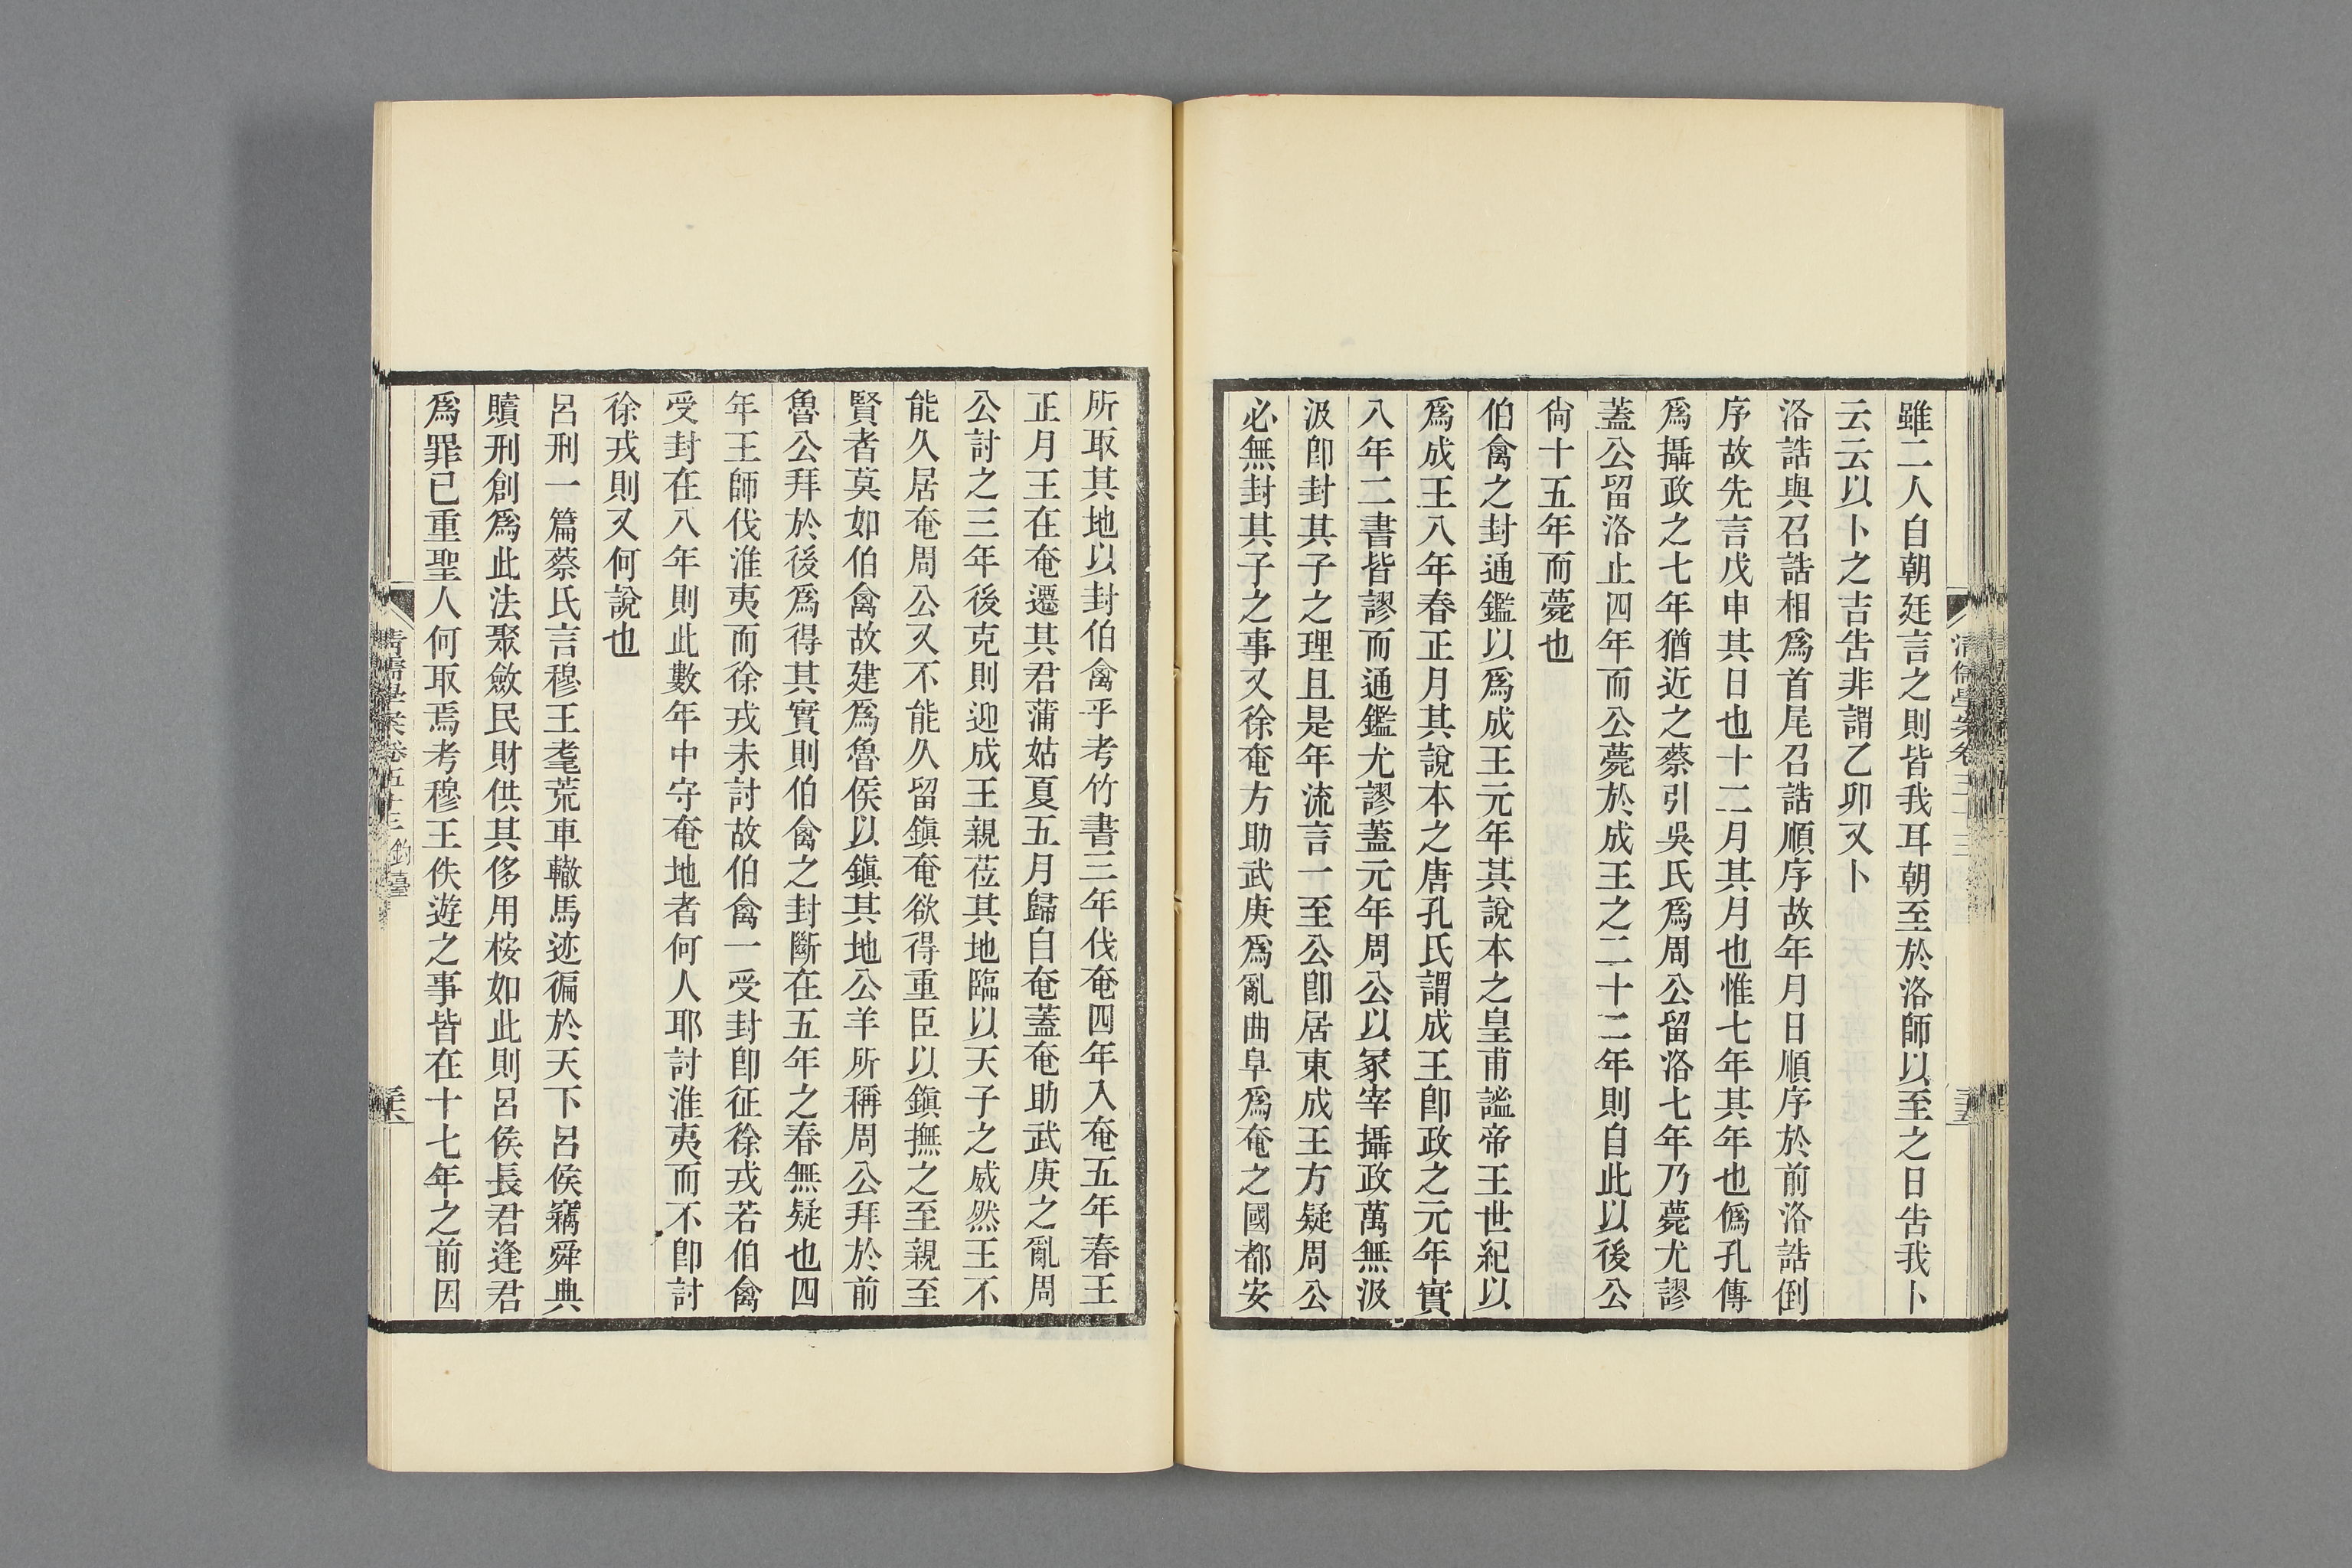 雖二人自朝廷言之則皆我耳朝至於洛師以至之日告我卜
云云以卜之吉告非謂乙卯又卜
洛誥與召誥相爲首尾召誥順序故年月日順序於前洛誥倒
序故先言戊申其日也十二月其月也惟七年其年也僞孔傳
爲攝政之七年猶近之蔡引吳氏爲周公留洛七年乃薨尤謬
蓋公留洛止四年而公薨於成王之二十二年則自此以後公
尙十五年而薨也
伯禽之封通鑑以爲成王元年其說本之皇甫謐帝王世紀以
爲成王八年春正月其說本之唐孔氏謂成王卽政之元年實
八年二書皆謬而通鑑尤謬蓋元年周公以冢宰攝政萬無汲
汲卽封其子之理且是年流言一至公卽居東成王方疑周公
必無封其子之事又徐奄方助武庚爲亂曲阜爲奄之國都安
所取其地以封伯禽乎考竹書三年伐奄四年入奄五年春王
正月王在奄遷其君蒲姑夏五月歸自奄蓋奄助武庚之亂周
公討之三年後克則迎成王親莅其地臨以天子之威然王不
能久居奄周公又不能久留鎭奄欲得重臣以鎭撫之至親至
賢者莫如伯禽故建爲魯侯以鎭其地公羊所稱周公拜於前
魯公拜於後爲得其實則伯禽之封斷在五年之春無疑也四
年王師伐淮夷而徐戎未討故伯禽一受封卽征徐戎若伯禽
受封在八年則此數年中守奄地者何人耶討淮夷而不卽討
徐戎則又何說也
呂刑一篇蔡氏言穆王耄荒車轍馬迹徧於天下呂侯竊舜典
贖刑創爲此法聚斂民財供其侈用桉如此則呂侯長君逢君
爲罪已重聖人何取焉考穆王佚遊之事皆在十七年之前因
清儒學案卷五十三 釣臺